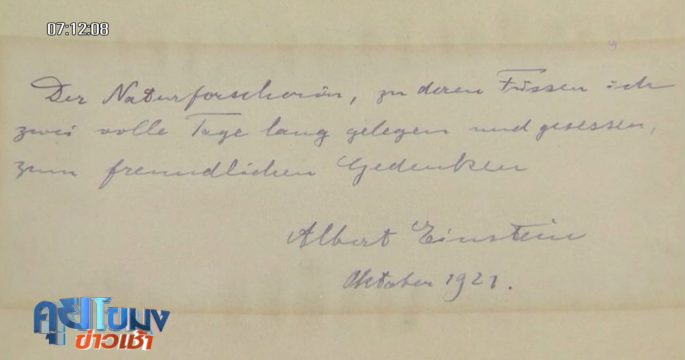 07:12:08
Der Naturforscherin, zu deren Füssen ich
zwei volle Tage lang gelegen und gesessen,
zum freundlichen Gedenken
Albert Einstein
Oktober 1921.
คุยโขมง
ข่าวเช้า